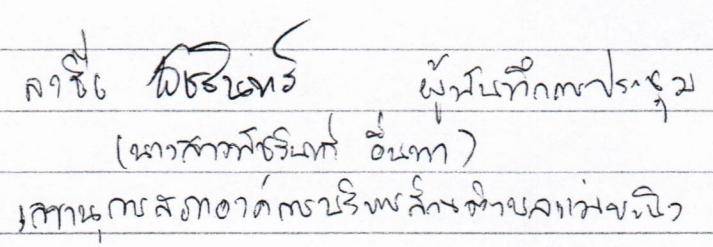 ลาชื่อ พัชรินทร์ ผู้บันทึกการประชุม
(นางสาวพัชรินทร์ อื่นทา)
เลขานุการสภาองค์การบริหารส่วนตำบลแม่ขะนิง